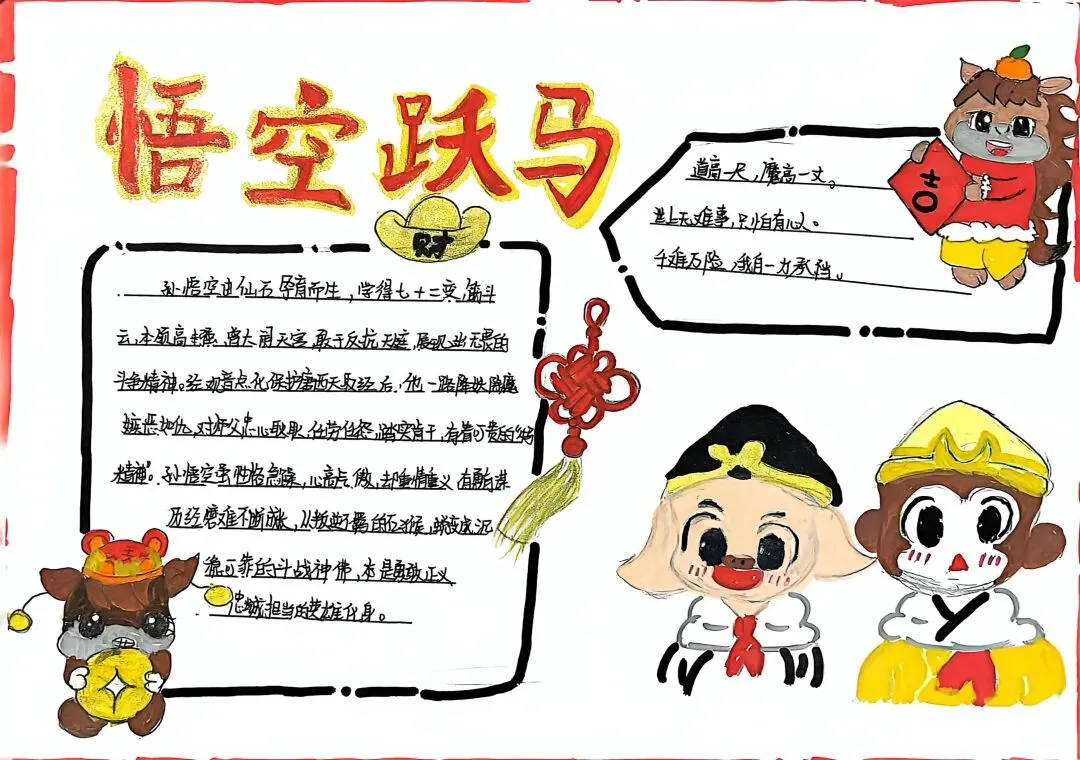 悟空跃马
财
孙悟空由仙石孕育而生，学得七十二变、筋斗
云，本领高强，曾大闹天宫，敢于反抗天庭，展现出无畏的
斗争精神。经观音点化，保护唐西天取经后，他一路降妖除魔
嫉恶如仇，对师父忠心耿耿、任劳任怨，踏实肯干，有着可贵的“
精神”。孙悟空虽性格急躁，心高气傲，却重情重义
历经磨难不断成长，从叛逆不羁的石猴，蜕变成沉
稳可靠的斗战神佛，本是勇敢正义
忠诚担当的英雄化身。
道高一尺，魔高一丈。
世上无难事，只怕有心。
千难万险，我自一力承担。
吉